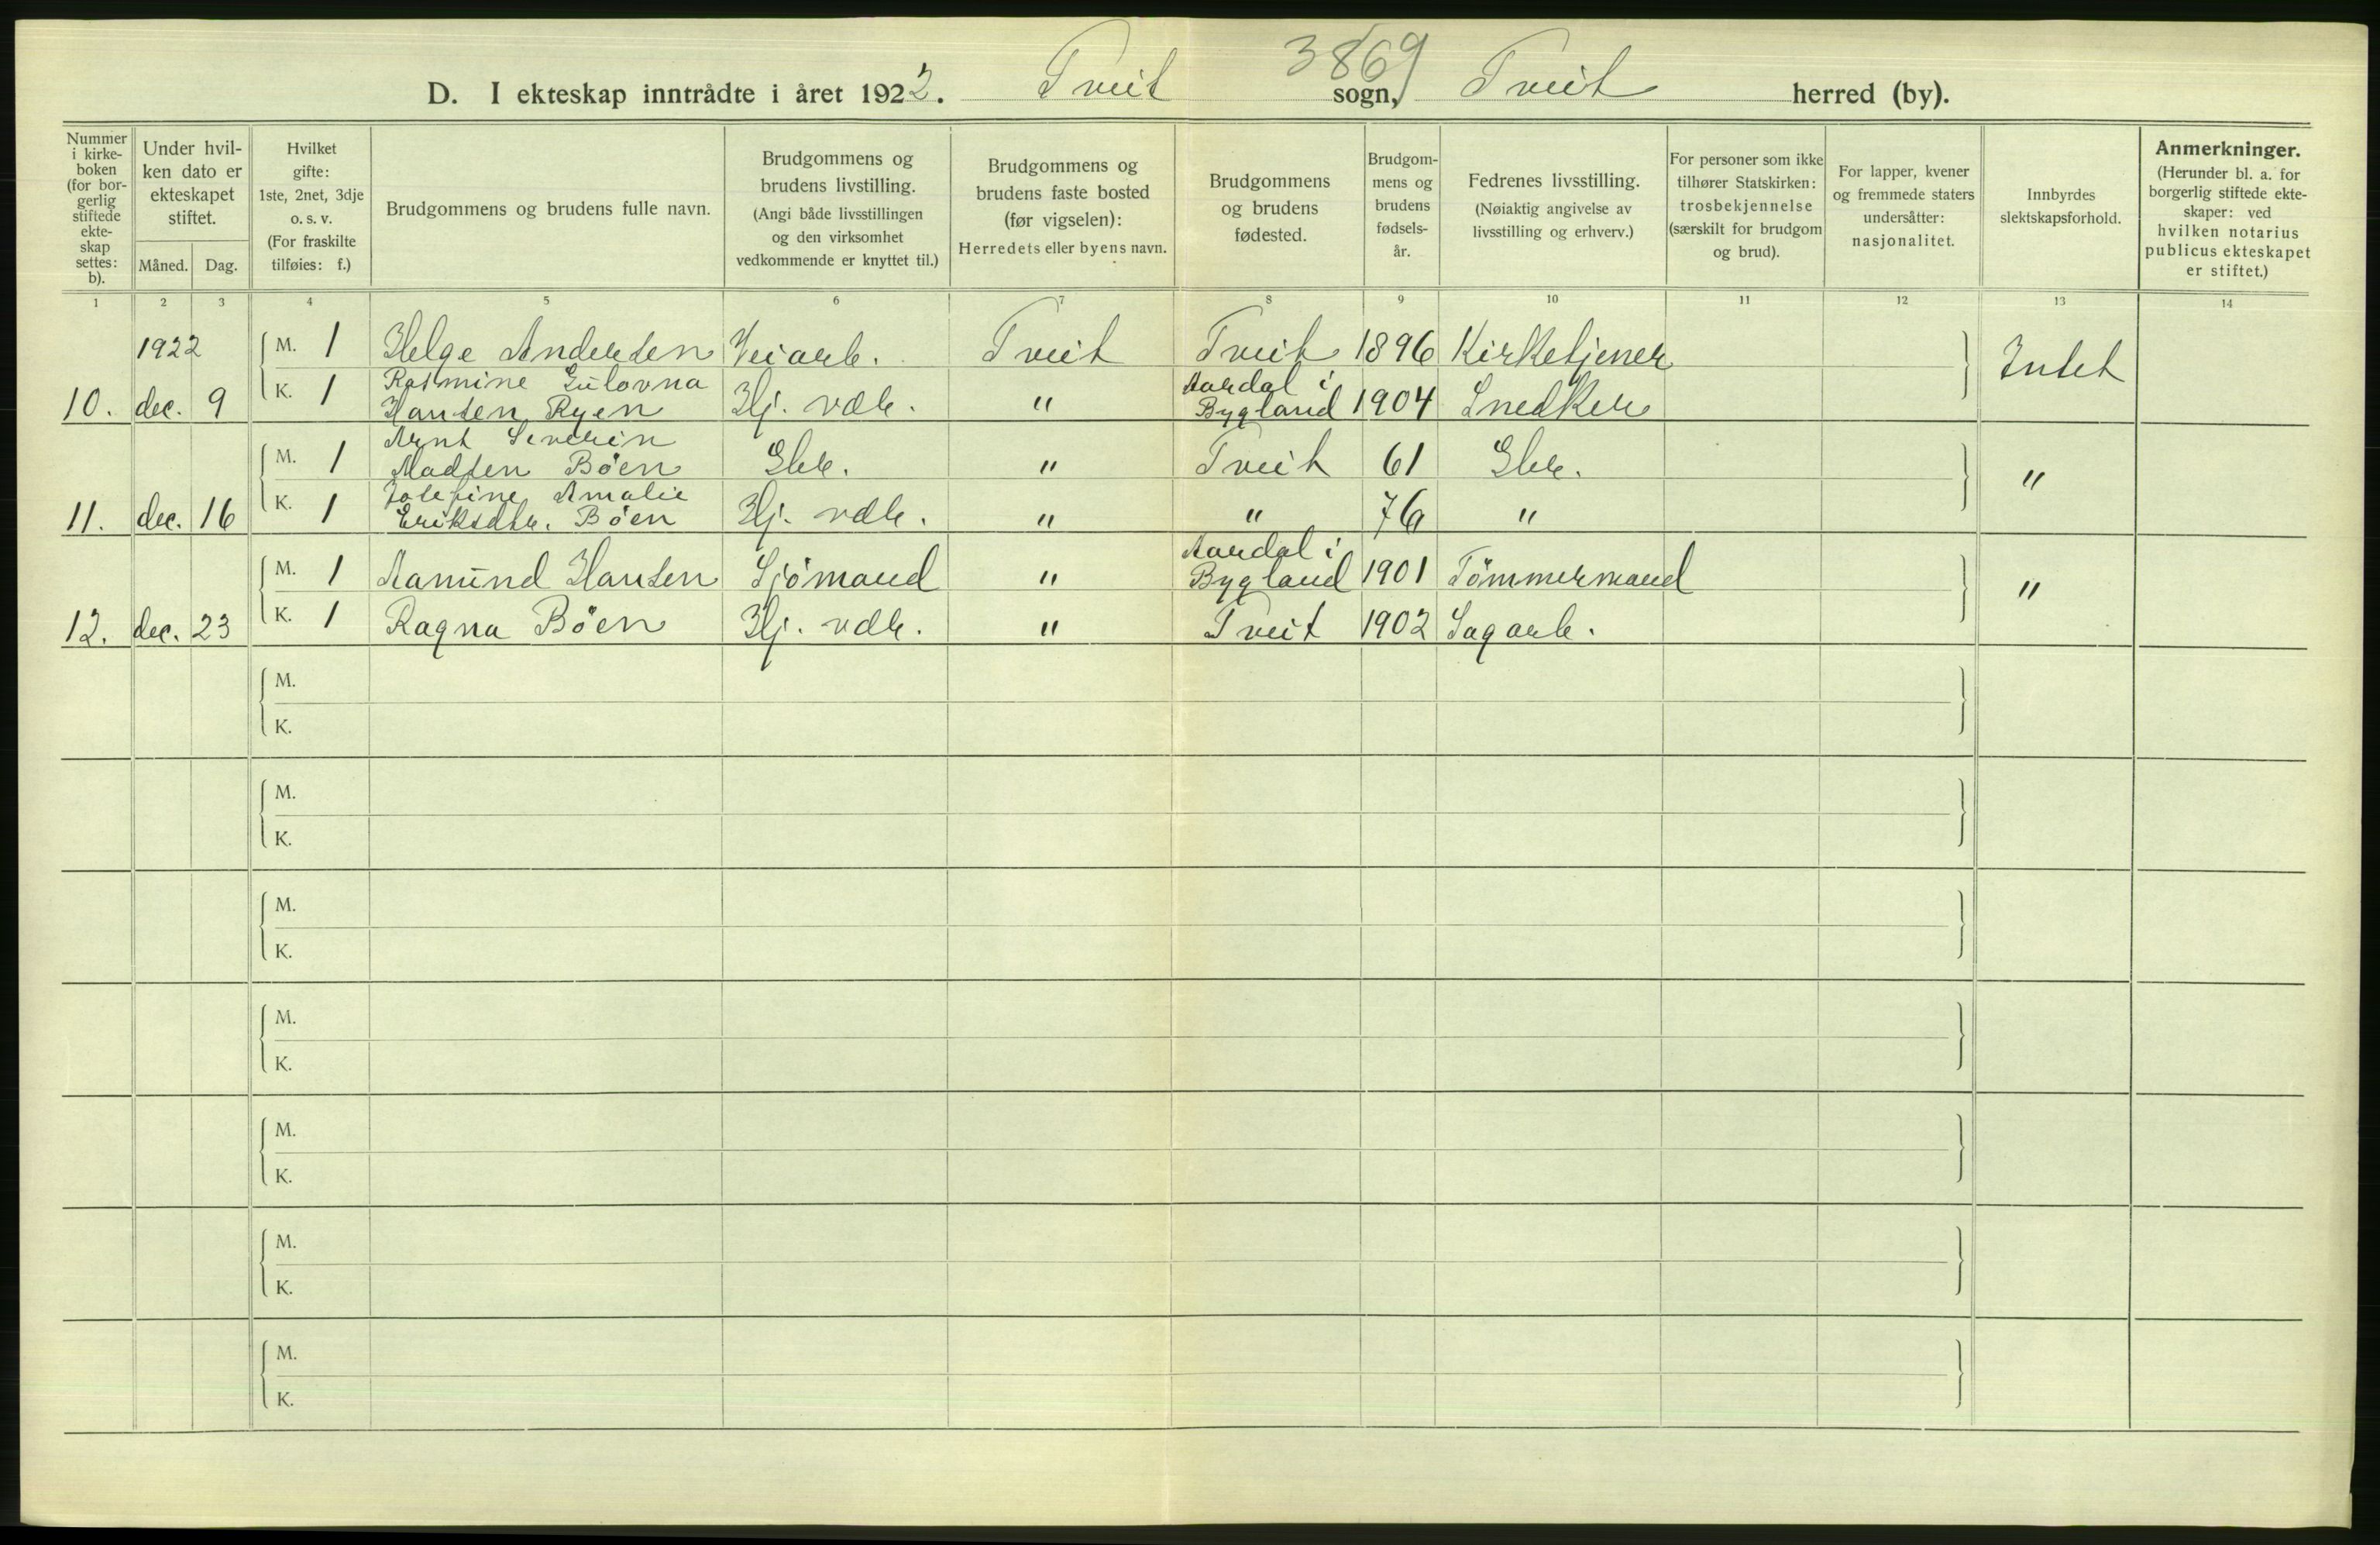 3869
D. I ekteskap inntrådte i året 1922. Tveit sogn, Tveit herred (by).
Nummer i kirke-boken (for bor-gerlig stiftede ekte-skap settes: b).
Under hvil-ken dato er ekteskapet stiftet.
Måned. Dag.
Hvilket gifte: 1ste, 2net, 3dje o. s. v. (For fraskilte tilføies: f.)
Brudgommens og brudens fulle navn.
Brudgommens og brudens livstilling. (Angi både livsstillingen og den virksomhet vedkommende er knyttet til.)
Brudgommens og brudens faste bosted (før vigselen): Herredets eller byens navn.
Brudgommens og brudens fødested.
Brudgom-mens og brudens fødsels-år.
Fedrenes livsstilling. (Nøiaktig angivelse av livsstilling og erhverv.)
For personer som ikke tilhører Statskirken: trosbekjennelse (særskilt for brudgom og brud).
For lapper, kvener og fremmede staters undersåtter: nasjonalitet.
Innbyrdes slektskapsforhold.
Anmerkninger. (Herunder bl. a. for borgerlig stiftede ekte-skaper: ved hvilken notarius publicus ekteskapet er stiftet.)
1 2 3 4 5 6 7 8 9 10 11 12 13 14
1922 M. 1 Helge Andersen Veiarb. Tveit Tveit 1896 Kirketjener Intet
10. dec. 9 K. 1 Rasmine Gulovna Hansen Ryen Hj. vdr. " Aardal i Bygland 1904 Snedker
M. 1 Arnt Severin Madsen Bøen Gbr. " Tveit 61 Gbr. "
11. dec. 16 K. 1 Josefine Amalie Eriksdtr. Bøen Hj. vdr. " " 76 "
M. 1 Aanund Hansen Sjömand " Aardal i Bygland 1901 Tömmermand "
12. dec. 23 K. 1 Ragna Böen Hj. vdr. " Tveit 1902 Sagarb.
M.
K.
M.
K.
M.
K.
M.
K.
M.
K.
M.
K.
M.
K.